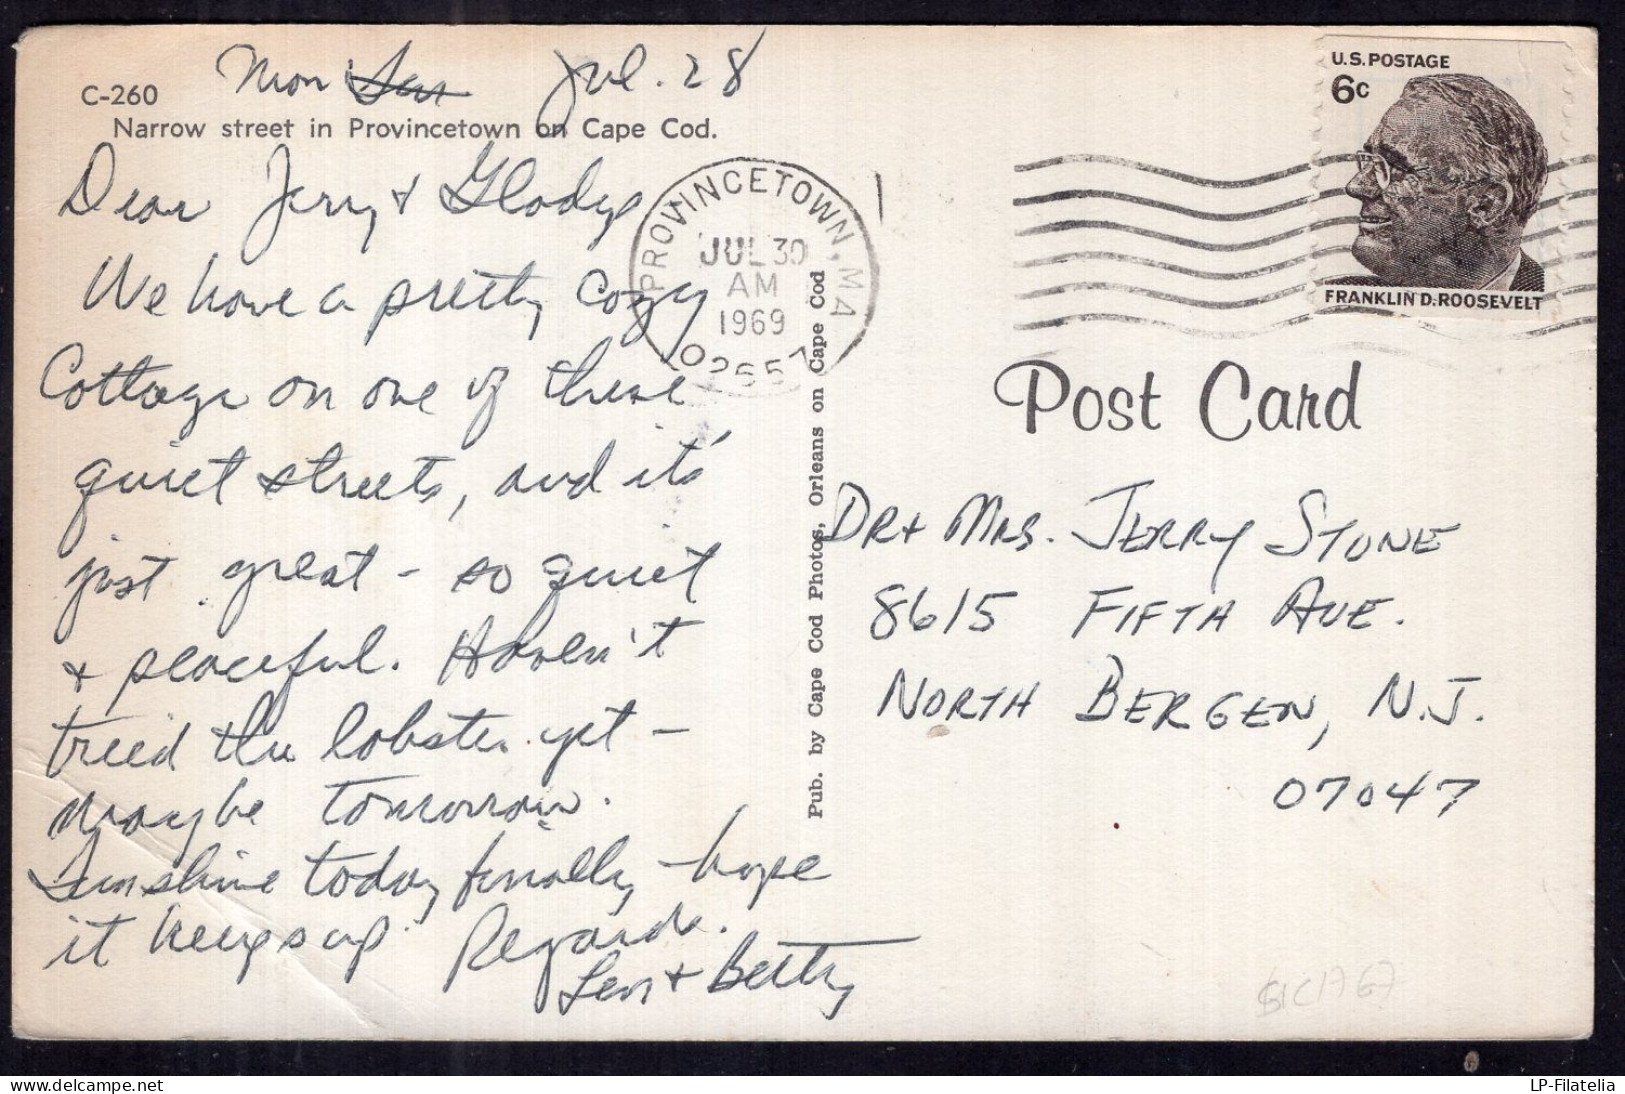 C-260
Mon Sun Jul. 28
Narrow street in Provincetown on Cape Cod.
Dear Jerry + Gladys
We have a pretty cozy
Cottage on one of these
quiet streets, and it's
just great - so quiet
+ peaceful. Haven't
tried the lobster yet -
maybe tomorrow.
Sunshine today finally - hope
it keeps up. Regards.
Len + Betty
PROVINCETOWN, MA
JUL 30
AM
1969
02657
Pub. by Cape Cod Photos, Orleans on Cape Cod
U.S. POSTAGE
6c
FRANKLIN D. ROOSEVELT
Post Card
DR + MRS. JERRY STONE
8615 FIFTH AVE.
NORTH BERGEN, N.J.
07047
LP-Filatelia